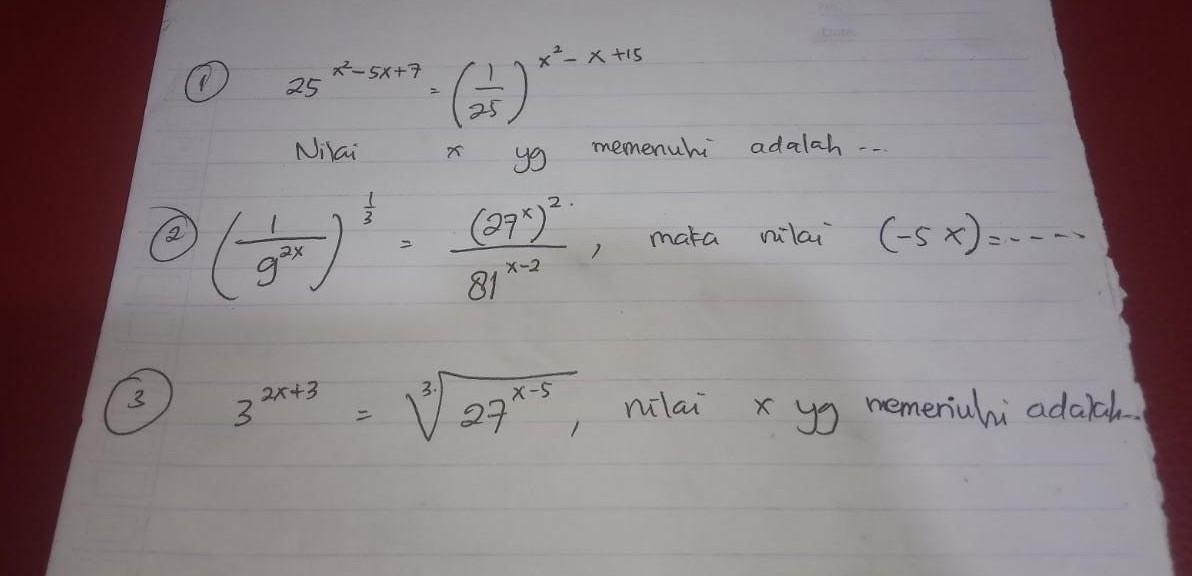 ① 25^(x²-5x+7) = (1/25)^(x²-x+15)
Nilai x yg memenuhi adalah ...
② (1/9^(2x))^(1/3) = (27^x)²/81^(x-2), maka nilai (-5x)=-----
③ 3^(2x+3) = ³√(27^(x-5)), nilai x yg memenuhi adalah...